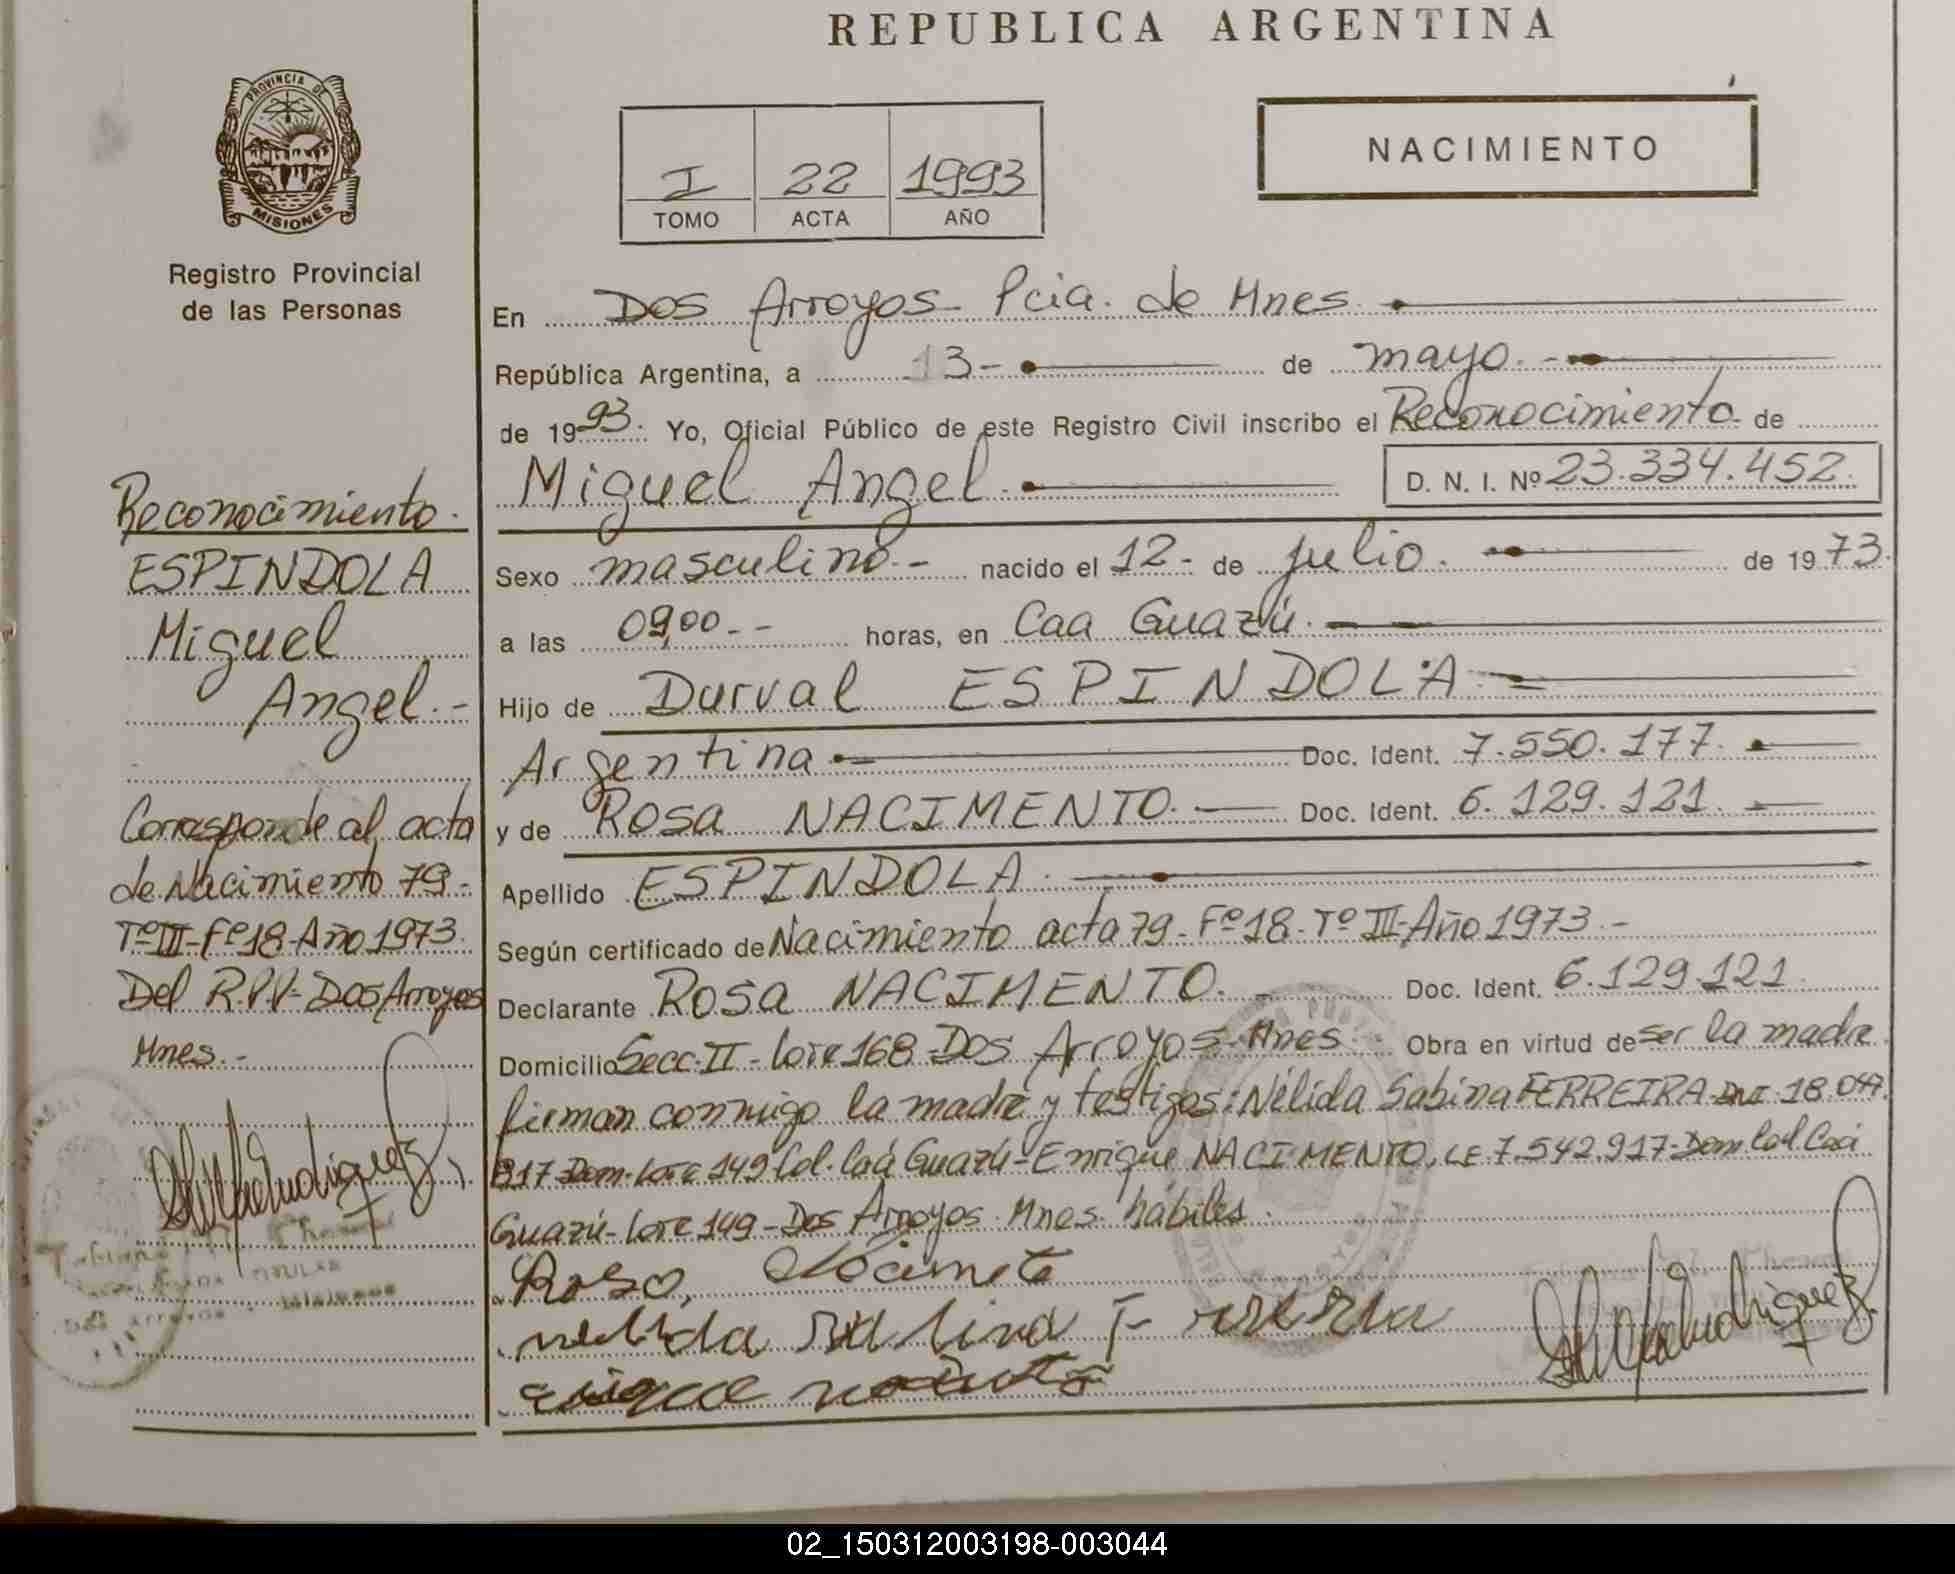 REPUBLICA ARGENTINA
PROVINCIA DE
MISIONES
Registro Provincial
de las Personas
I 22 1993
TOMO ACTA AÑO
NACIMIENTO
En Dos Arroyos- Pcia. de Mnes.
República Argentina, a 13- de mayo.-
de 1993. Yo, Oficial Público de este Registro Civil inscribo el Reconocimiento de
Miguel Angel. D. N. I. Nº 23.334.452.
Sexo masculino.- nacido el 12- de julio. de 1973.
a las 09,00-- horas, en Caa Guazú.
Hijo de Durval ESPINDOLA
Argentina Doc. Ident. 7.550.177.
y de Rosa NACIMENTO. Doc. Ident. 6.129.121.
Apellido ESPINDOLA.
Según certificado de Nacimiento acta 79- Fº 18- Tº III- Año 1973.-
Declarante Rosa NACIMENTO. Doc. Ident. 6.129.121.
Domicilio Secc-II- lote 168-Dos Arroyos-Mnes. Obra en virtud de ser la madre
firman conmigo la madre y testigos: Nélida Sabina FERREIRA DNI 18.044.
917-Dom-lote 149 Col. Caá Guazú-Enrique NACIMENTO, LE 7.542.917-Dom Col Caá
Guazú-lote 149-Dos Arroyos-Mnes. hábiles.
Reconocimiento.
ESPINDOLA
Miguel
Angel.-
Corresponde al acta
de Nacimiento 79-
Tº III-Fº 18-Año 1973.
Del R.P.P-Dos Arroyos
Mnes.-
TITULAR
Dos Arroyos - Misiones
02_150312003198-003044